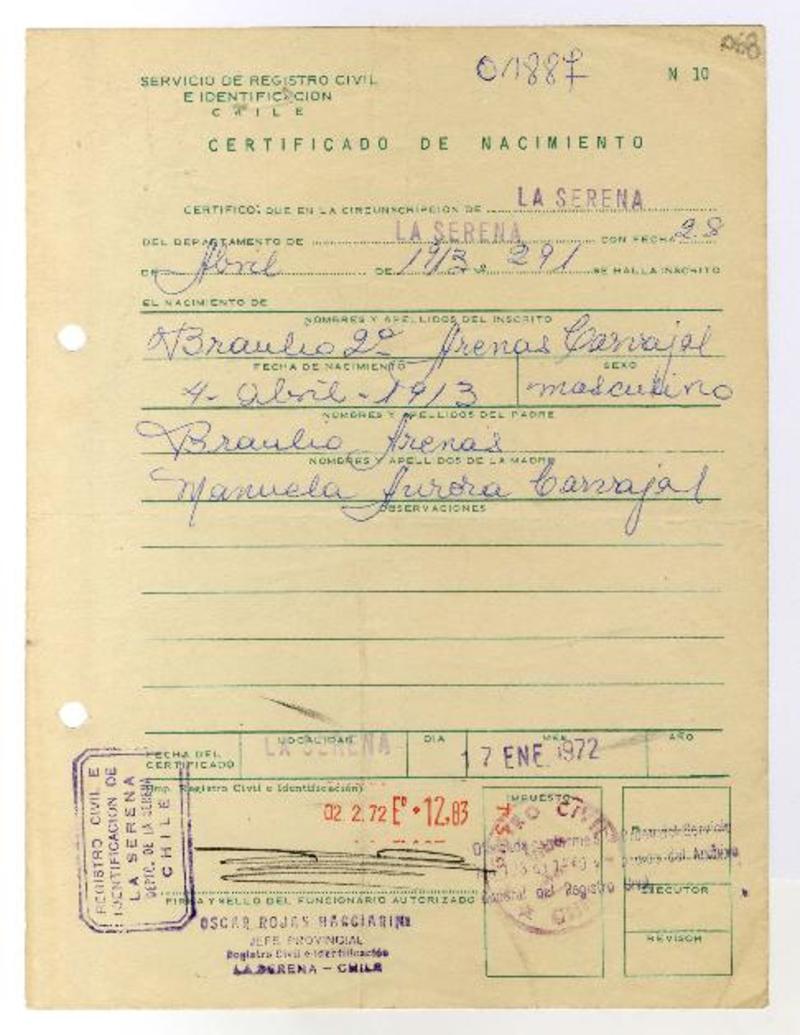 068
SERVICIO DE REGISTRO CIVIL
E IDENTIFICACION
CHILE
01887
N 10
CERTIFICADO DE NACIMIENTO
CERTIFICO: QUE EN LA CIRCUNSCRIPCION DE LA SERENA
DEL DEPARTAMENTO DE LA SERENA CON FECHA 28
DE Abril DE 1913 291 SE HALLA INSCRITO
EL NACIMIENTO DE
NOMBRES Y APELLIDOS DEL INSCRITO
Braulio 2º Arenas Carvajal
FECHA DE NACIMIENTO
SEXO
4 - abril - 1913
masculino
NOMBRES Y APELLIDOS DEL PADRE
Braulio Arenas
NOMBRES Y APELLIDOS DE LA MADRE
Manuela Aurora Carvajal
OBSERVACIONES
FECHA DEL
CERTIFICADO
LOCALIDAD
LA SERENA
DIA
MES
AÑO
17 ENE. 1972
(Imp. Registro Civil e Identificación)
02 2.72 Eº 12.83
IMPUESTO
REGISTRO CIVIL E
IDENTIFICACION DE
LA SERENA
DEPTO. DE LA SERENA
CHILE
General del Registro Civil
FIRMA Y SELLO DEL FUNCIONARIO AUTORIZADO
EJECUTOR
REVISOR
OSCAR ROJAS
JEFE PROVINCIAL
Registro Civil e Identificación
LA SERENA - CHILE